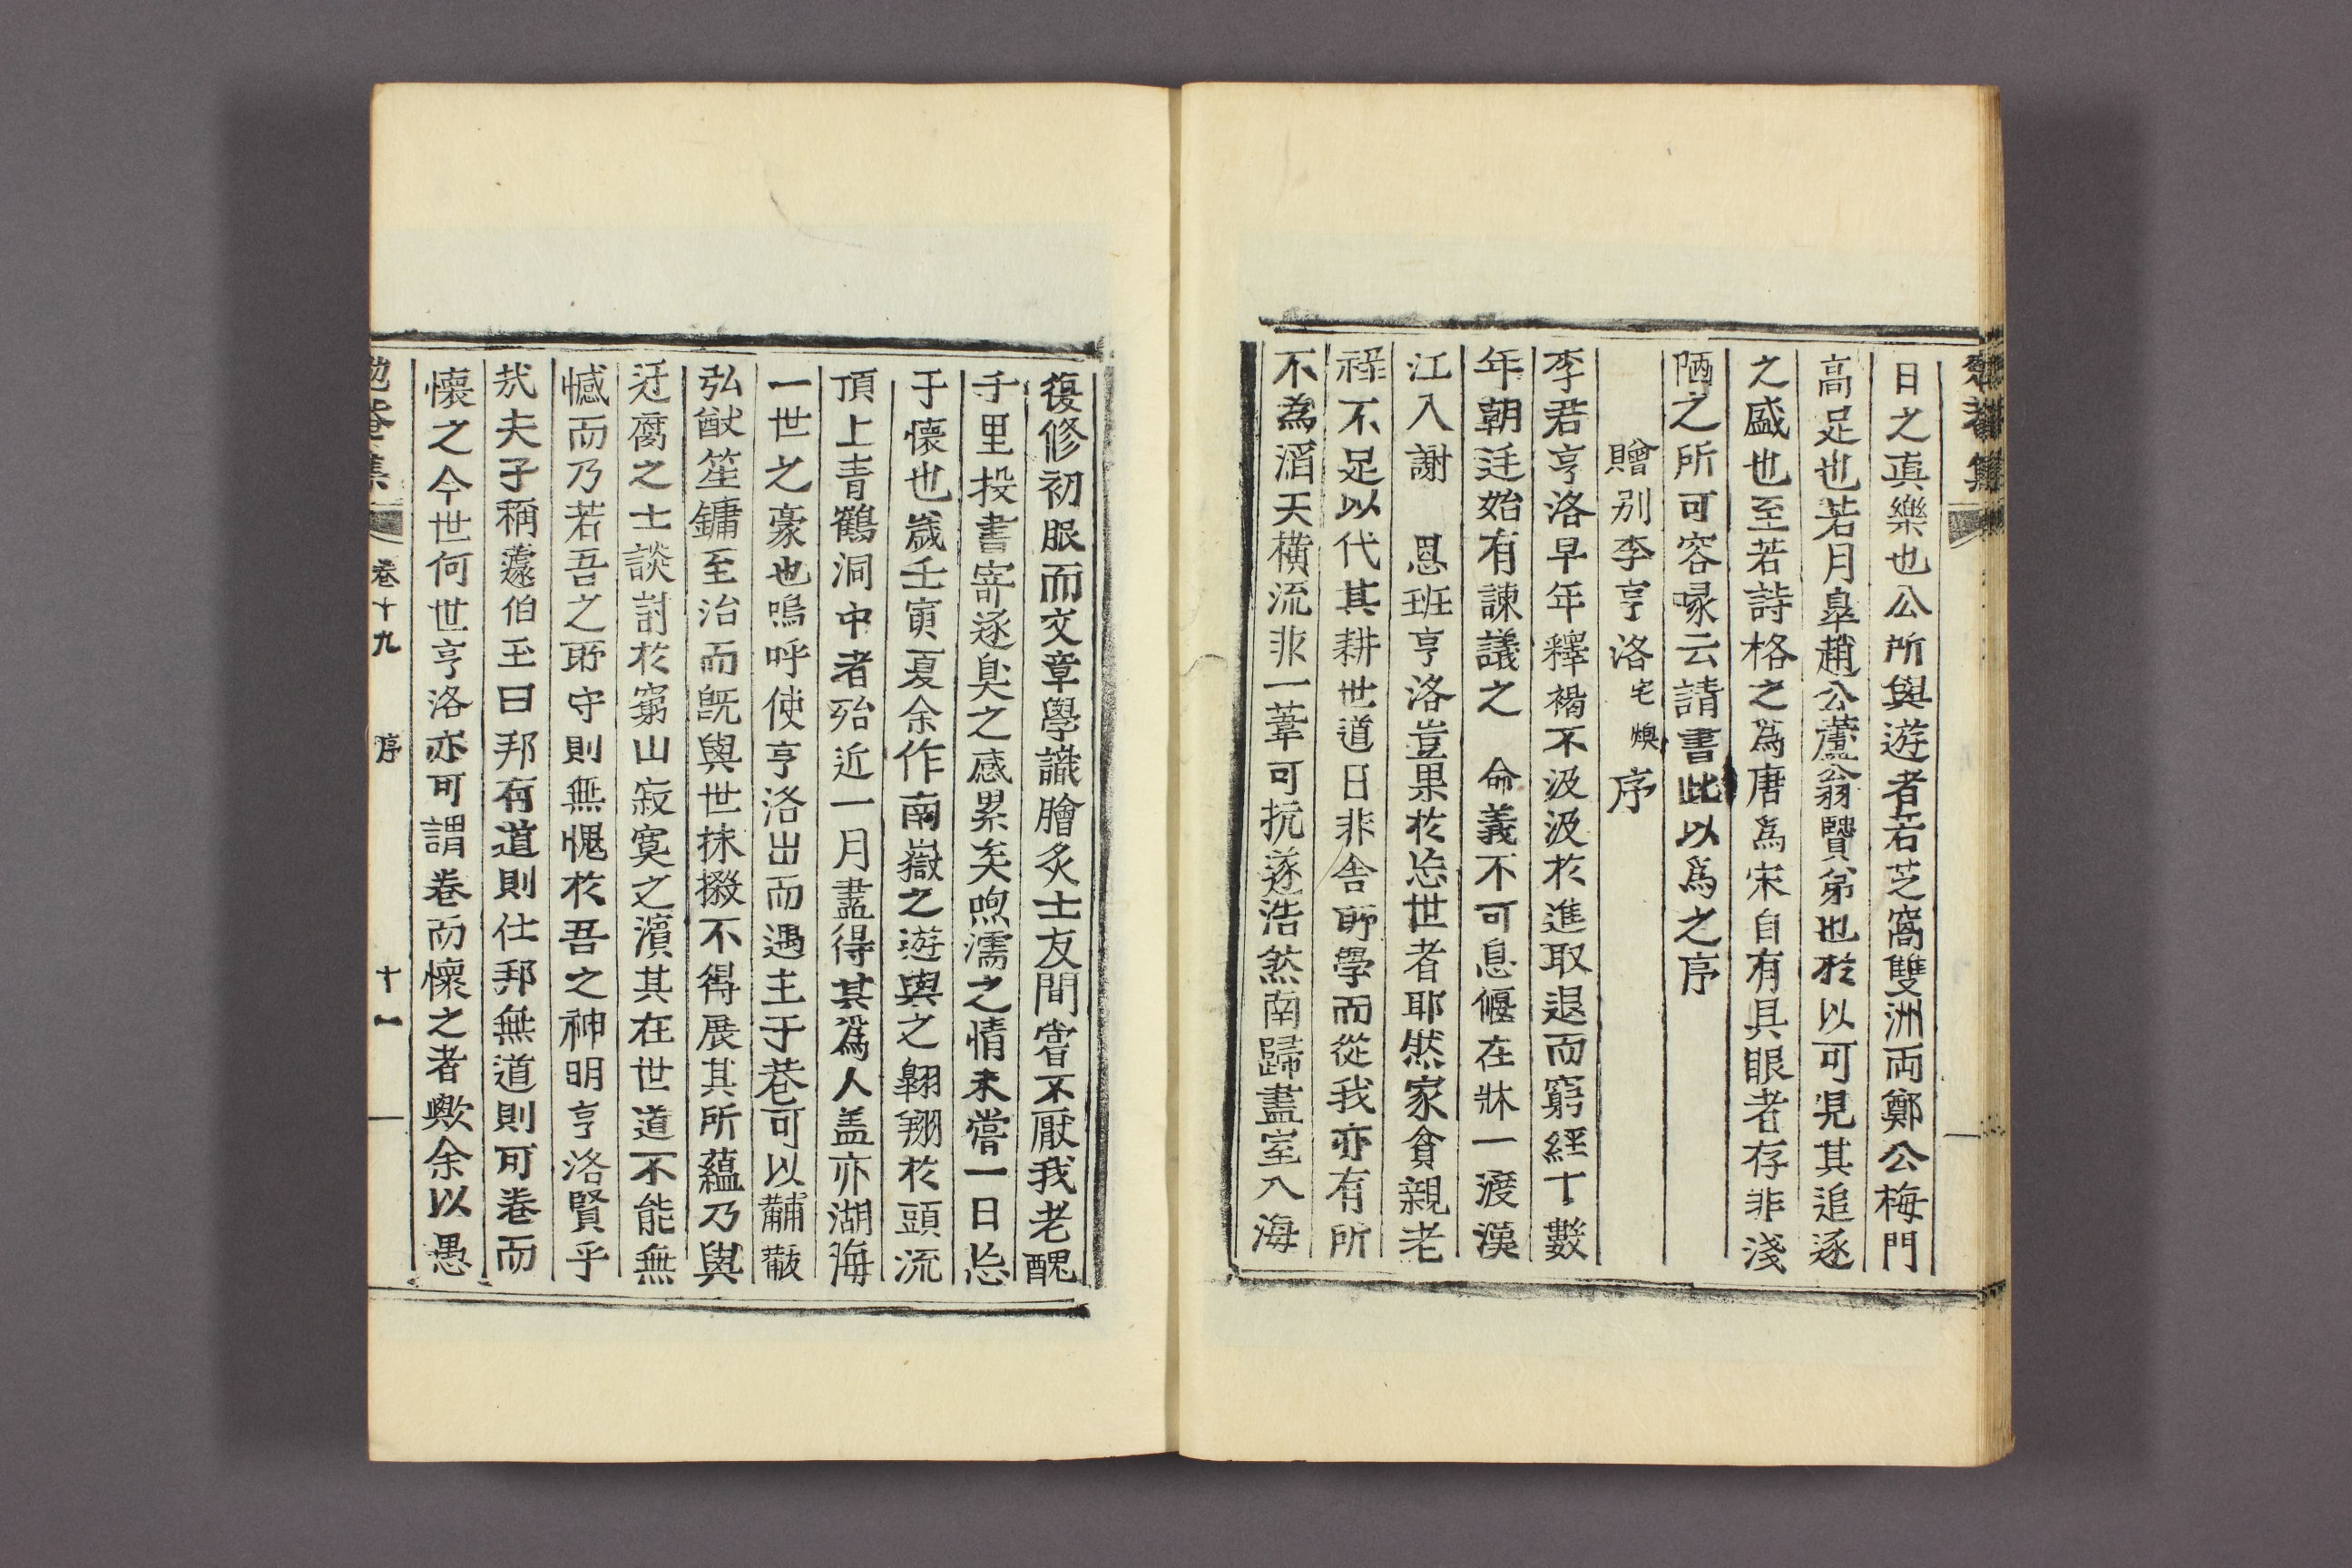 勉菴集
日之眞樂也公所與遊者若芝窩雙洲兩鄭公梅門
高足也若月皐趙公蘆翁賢弟也於以可見其追逐
之盛也至若詩格之爲唐爲宋自有具眼者存非淺
陋之所可容喙云請書此以爲之序
贈別李亨洛宅煥序
李君亨洛早年釋褐不汲汲於進取退而窮經十數
年朝廷始有諫議之 命義不可息偃在牀一渡漢
江入謝 恩班亨洛豈果於忘世者耶然家貧親老
祿不足以代其耕世道日非舍所學而從我亦有所
不為滔天橫流非一葦可抗遂浩然南歸盡室入海
復修初服而文章學識膾炙士友間嘗不厭我老醜
千里投書寄逐臭之感累矣喣濡之情未嘗一日忘
于懷也歲壬寅夏余作南嶽之遊與之翱翔於頭流
頂上青鶴洞中者殆近一月盡得其爲人盖亦湖海
一世之豪也嗚呼使亨洛出而遇主于巷可以黼黻
弘猷笙鏞至治而旣與世抹摋不得展其所蘊乃與
迂腐之士談討於窮山寂寞之濱其在世道不能無
憾而乃若吾之所守則無愧於吾之神明亨洛賢乎
㢤夫子稱蘧伯玉曰邦有道則仕邦無道則可卷而
懷之今世何世亨洛亦可謂卷而懷之者歟余以愚
勉菴集 卷十九 序 十一